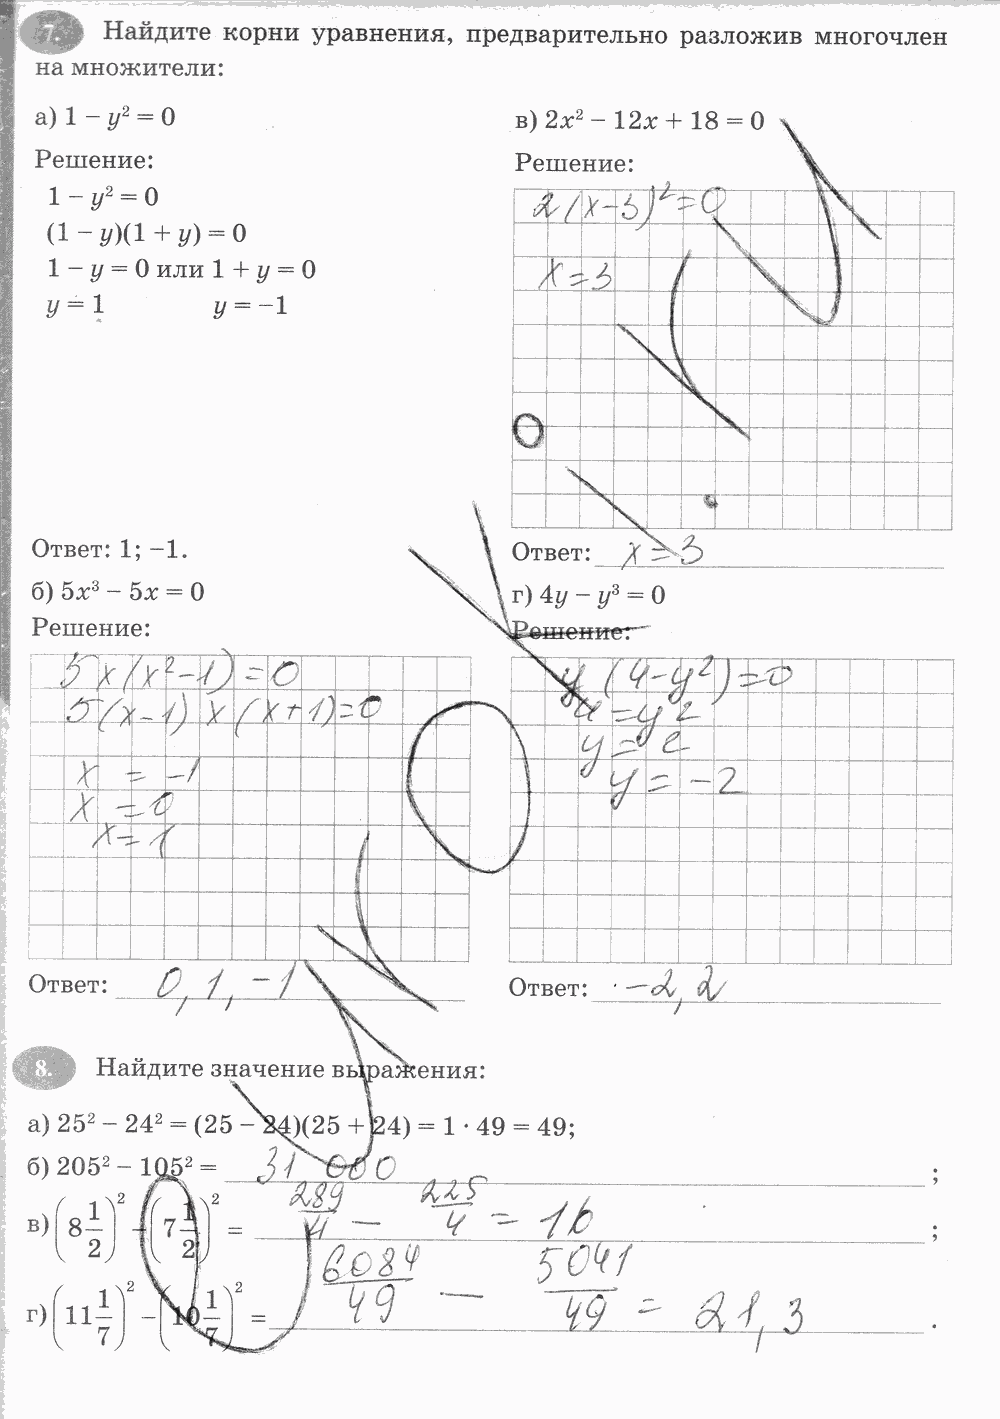 7. Найдите корни уравнения, предварительно разложив многочлен
на множители:
а) 1 − y² = 0
Решение:
1 − y² = 0
(1 − y)(1 + y) = 0
1 − y = 0 или 1 + y = 0
y = 1 y = −1
Ответ: 1; −1.
б) 5x³ − 5x = 0
Решение:
5x(x²−1)=0
5(x−1)x(x+1)=0
x = −1
x = 0
x=1
Ответ: 0, 1, −1
в) 2x² − 12x + 18 = 0
Решение:
2(x−3)²=0
x=3
Ответ: x=3
г) 4y − y³ = 0
Решение:
y(4−y²)=0
4=y²
y=2
y=−2
Ответ: −2, 2
8. Найдите значение выражения:
а) 25² − 24² = (25 − 24)(25 + 24) = 1 · 49 = 49;
б) 205² − 105² = 31 000 ;
в) (8 1/2)² − (7 1/2)² = 289/4 − 225/4 = 16 ;
г) (11 1/7)² − (10 1/7)² = 6084/49 − 5041/49 = 21,3 .